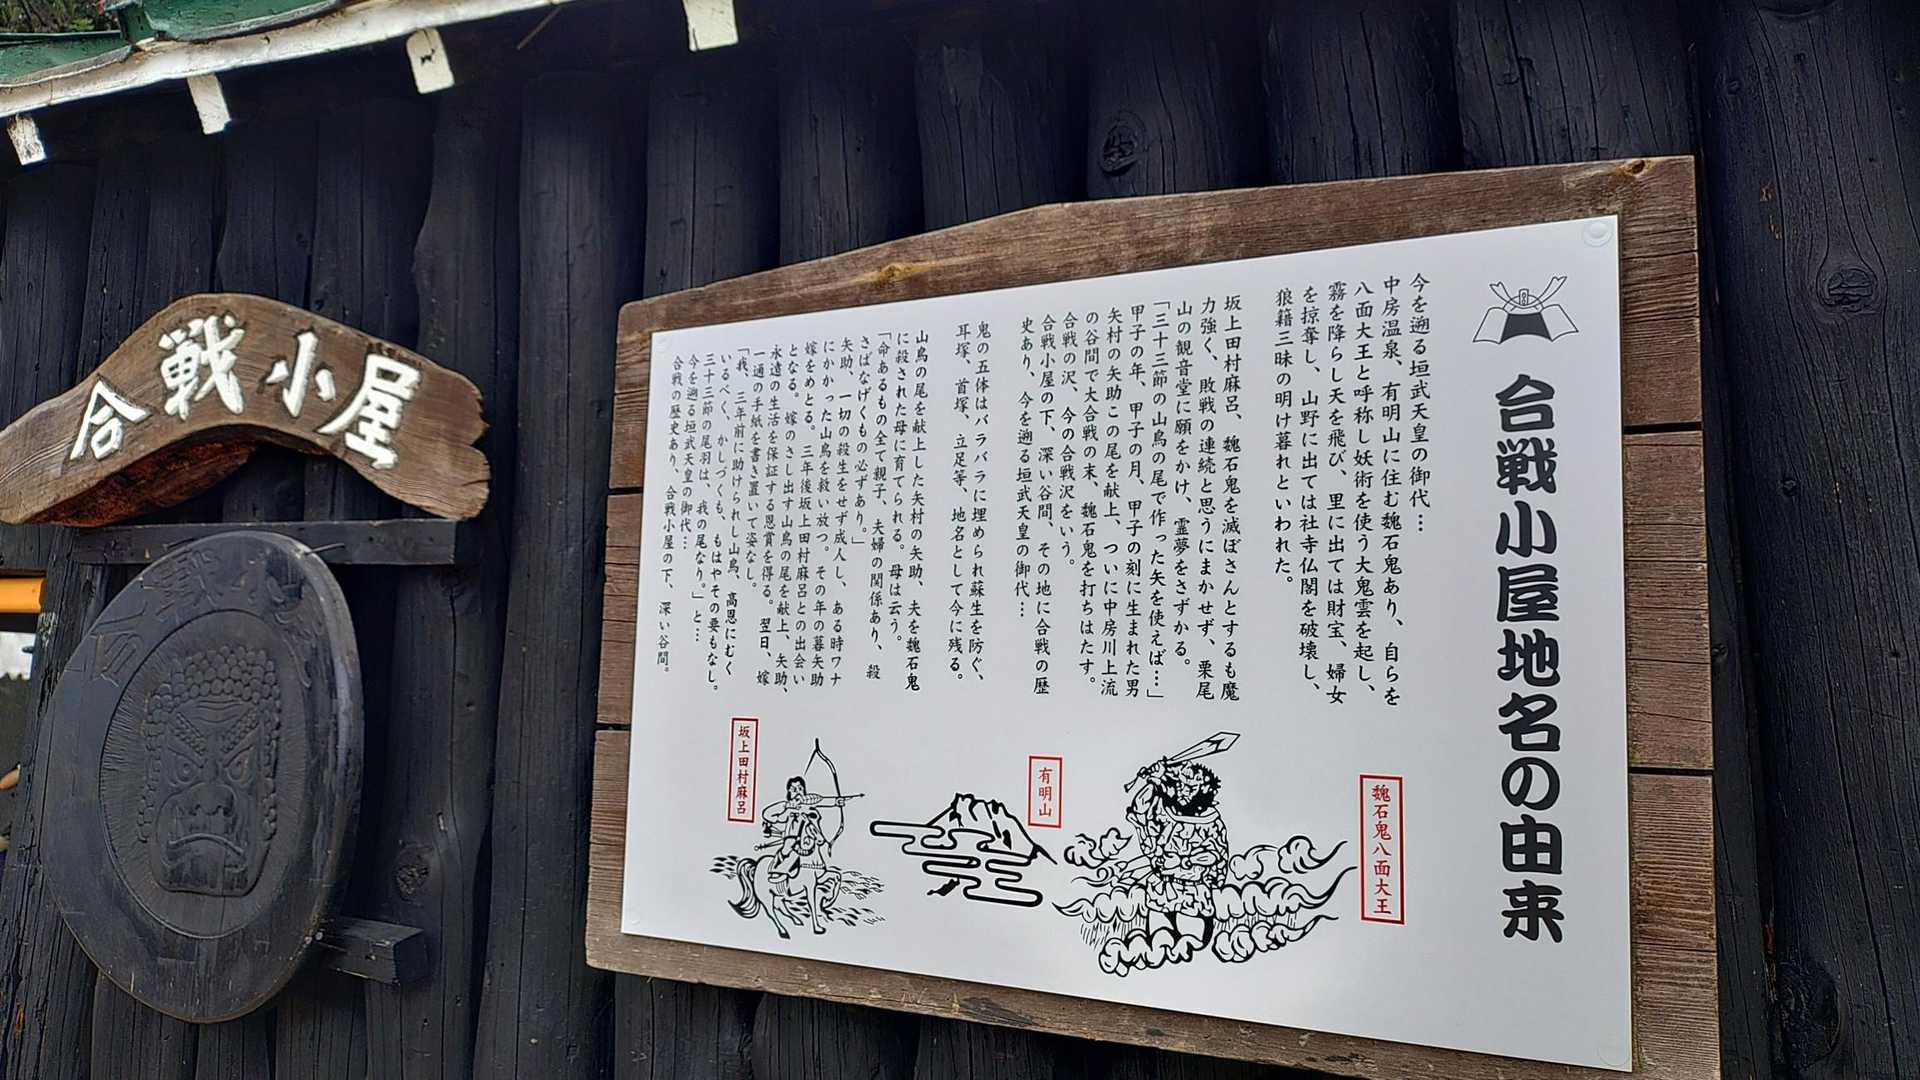 合戦小屋
合戦小屋地名の由来
今を遡る垣武天皇の御代…
中房温泉、有明山に住む魏石鬼あり、自らを
八面大王と呼称し妖術を使う大鬼雲を起し、
霧を降らし天を飛び、里に出ては財宝、婦女
を掠奪し、山野に出ては社寺仏閣を破壊し、
狼籍三昧の明け暮れといわれた。
坂上田村麻呂、魏石鬼を滅ぼさんとするも魔
力強く、敗戦の連続と思うにまかせず、栗尾
山の観音堂に願をかけ、霊夢をさずかる。
「三十三節の山鳥の尾で作った矢を使えば…」
甲子の年、甲子の月、甲子の刻に生まれた男
矢村の矢助この尾を献上、ついに中房川上流
の谷間で大合戦の末、魏石鬼を打ちはたす。
合戦の沢、今の合戦沢をいう。
合戦小屋の下、深い谷間、その地に合戦の歴
史あり、今を遡る垣武天皇の御代…
鬼の五体はバラバラに埋められ蘇生を防ぐ、
耳塚、首塚、立足等、地名として今に残る。
山鳥の尾を献上した矢村の矢助、夫を魏石鬼
に殺された母に育てられる。母は云う。
「命あるもの全て親子、夫婦の関係あり、殺
さばなげくもの必ずあり。」
矢助、一切の殺生をせず成人し、ある時ワナ
にかかった山鳥を救い放つ。その年の暮矢助
嫁をめとる。三年後坂上田村麻呂との出会い
となる。嫁のさし出す山鳥の尾を献上、矢助、
永遠の生活を保証する恩賞を得る。翌日、嫁
一通の手紙を書き置いて姿なし。
「我、三年前に助けられし山鳥、高恩にむく
いるべく、かしづくも、もはやその要もなし。
三十三節の尾羽は、我の尾なり。」と…
今を遡る垣武天皇の御代…
合戦の歴史あり、合戦小屋の下、深い谷間。
魏石鬼八面大王
有明山
坂上田村麻呂